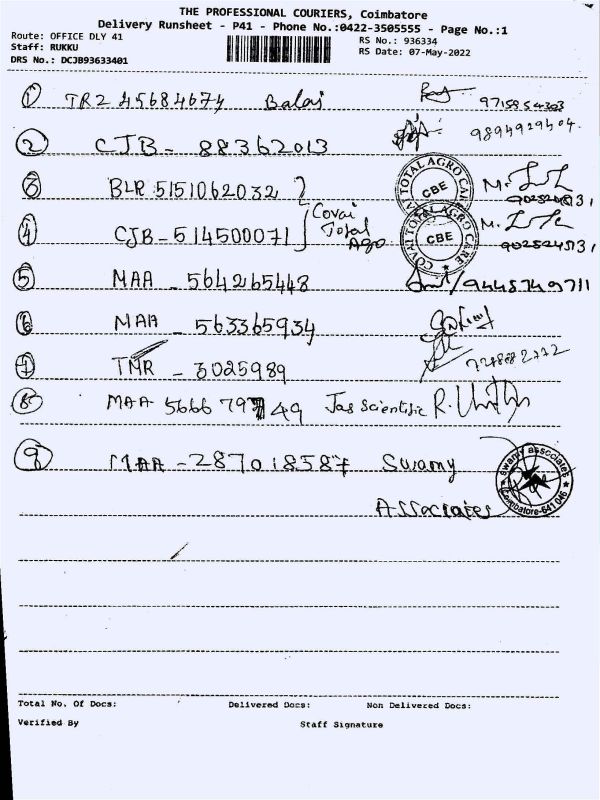 THE PROFESSIONAL COURIERS, Coimbatore
Delivery Runsheet - P41 - Phone No.:0422-3505555 - Page No.:1
Route: OFFICE DLY 41
Staff: RUKKU
DRS No.: DCJB93633401
RS No.: 936334
RS Date: 07-May-2022
1 TR2 45684674 Balaj
2 CJB - 88362013 9894929404.
3 BLR 5151062032
COVAI TOTAL AGRO CARE
CBE
4 CJB-514500071 Covai Total Ago
COVAI TOTAL AGRO CARE
CBE
5 MAA - 564265448 9445749711
6 MAA - 563365934
7 TMR - 3025989
8 MAA 566679749 Jas Scientific
9 MAA - 287018587 Swamy
Associates
swamy associates
Coimbatore-641 046
Total No. Of Docs: Delivered Docs: Non Delivered Docs:
Verified By Staff Signature